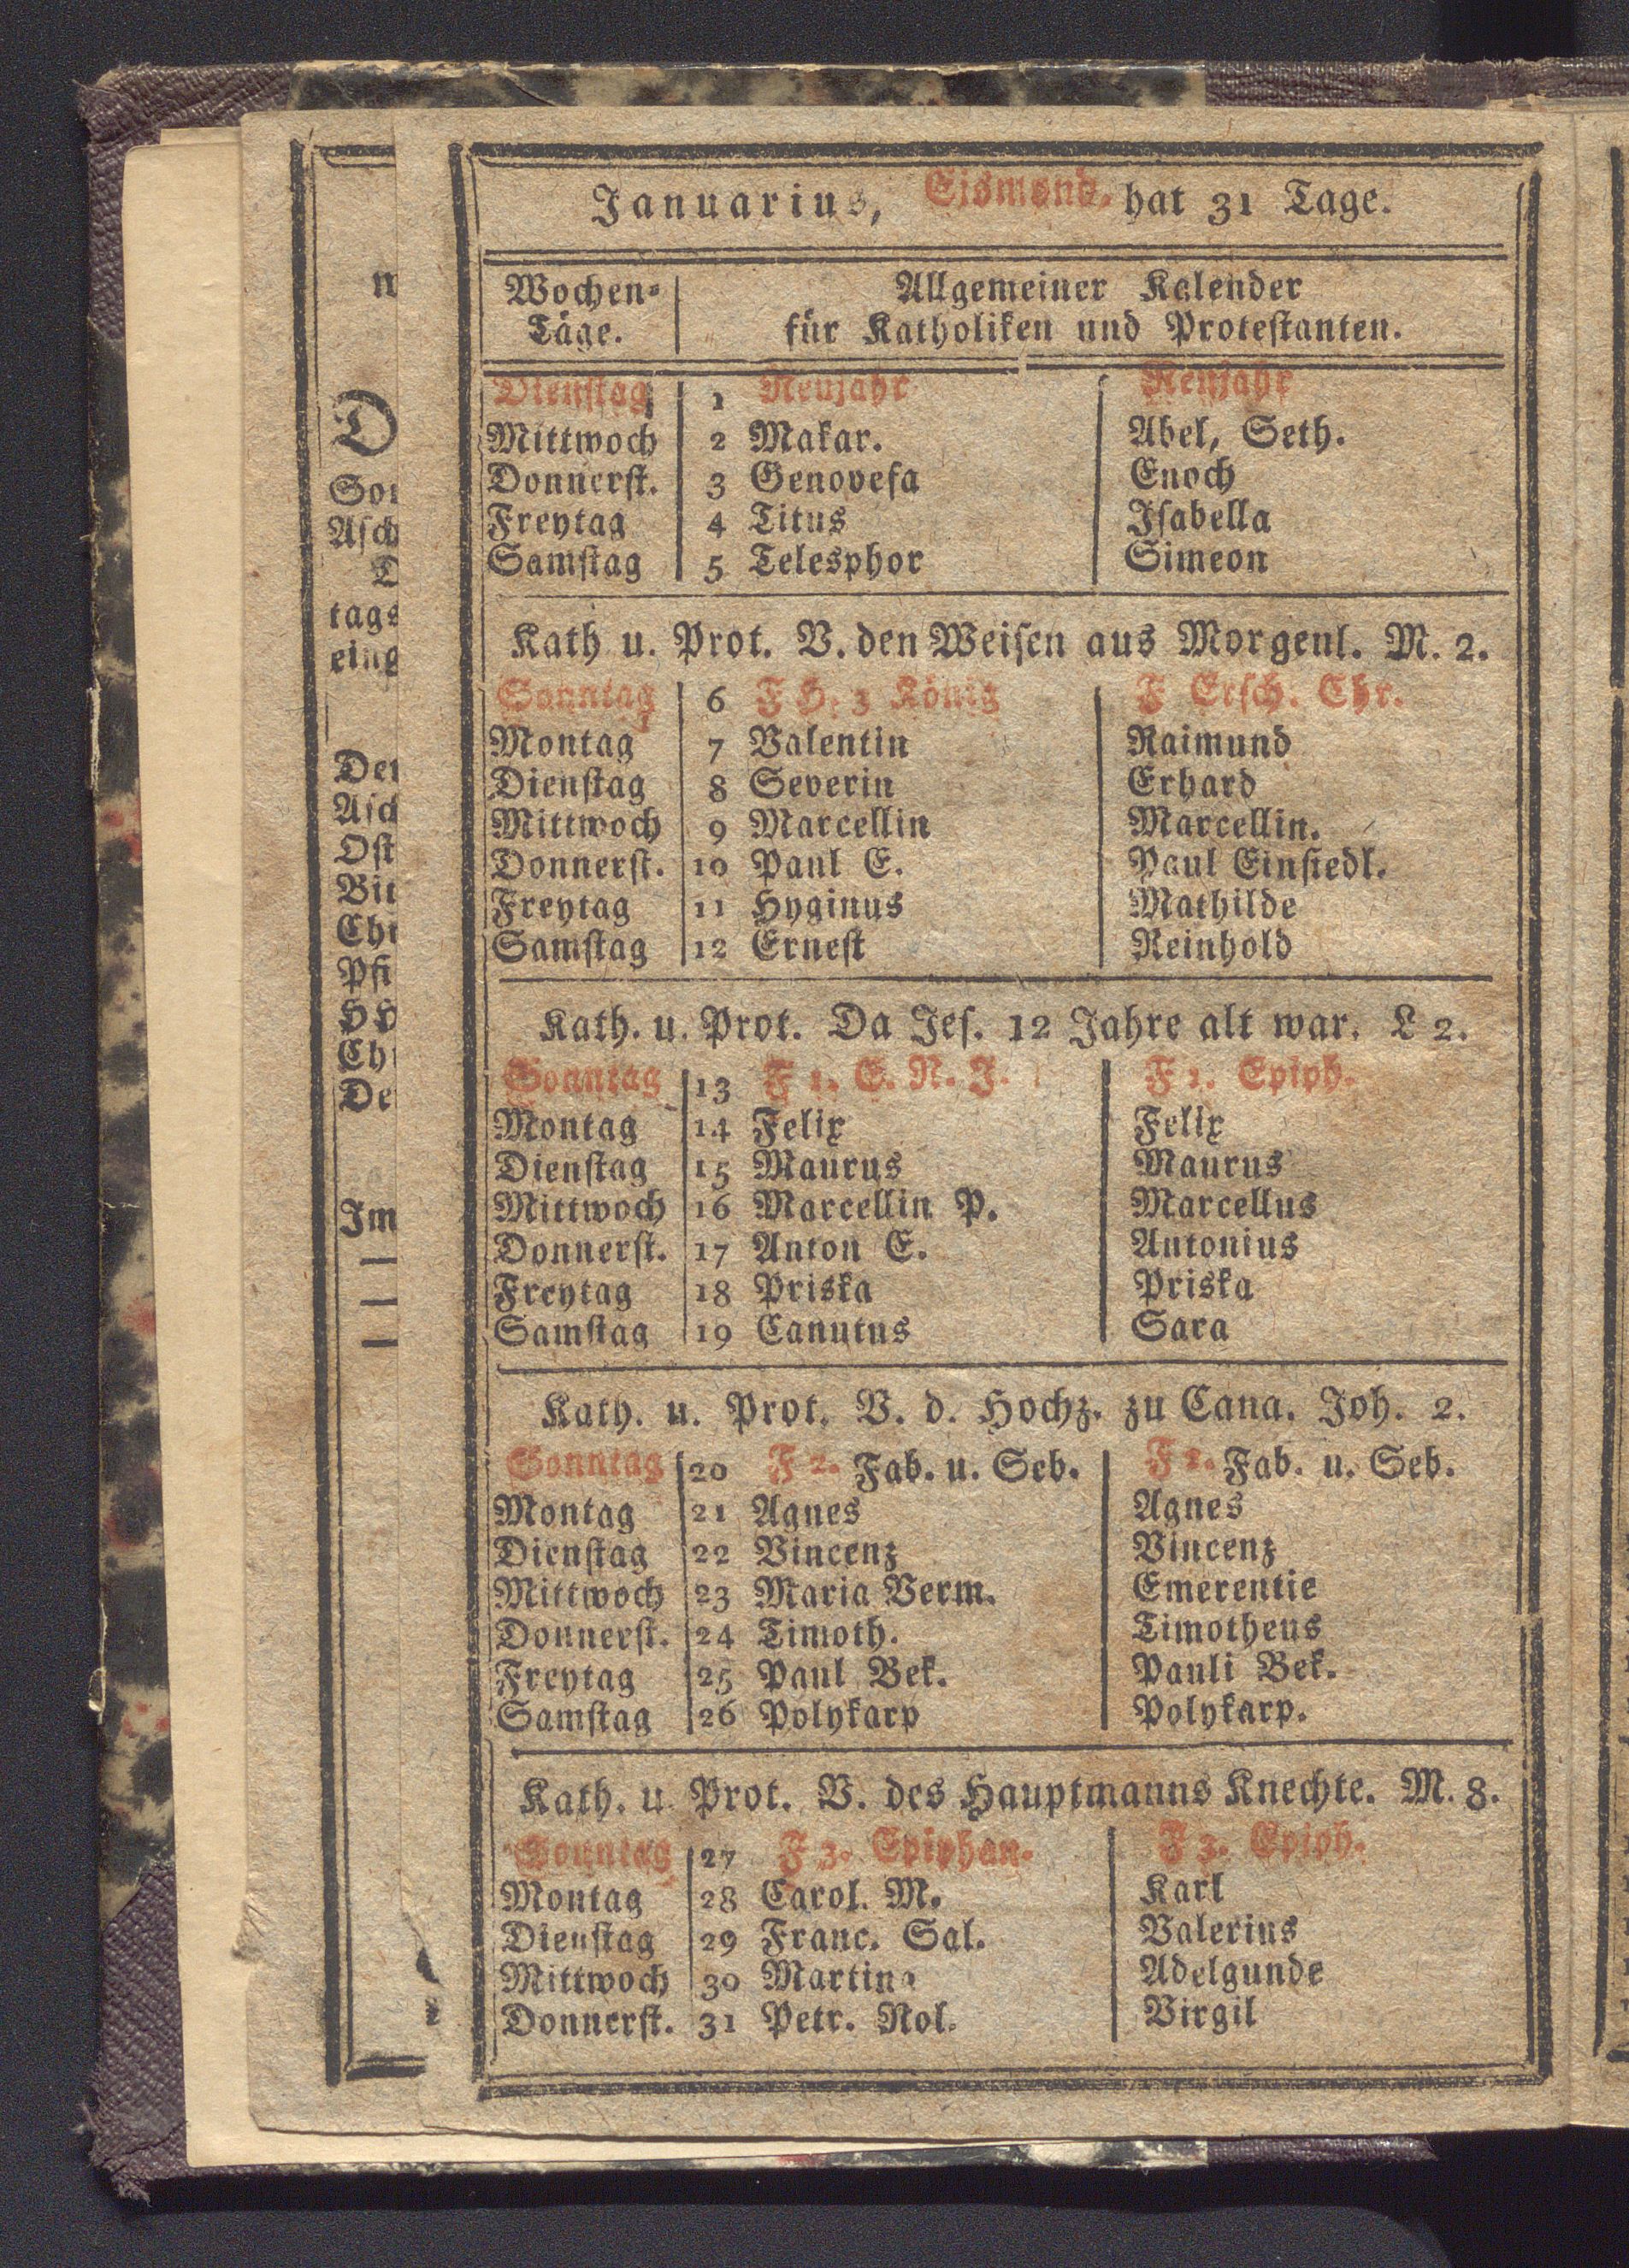 Januarius, Eismond. hat 31 Tage.
Wochen= Allgemeiner Kalender
Täge. für Katholiken und Protestanten.
Dienstag 1 Neujahr Neujahr
Mittwoch 2 Makar. Abel, Seth.
Donnerst. 3 Genovefa Enoch
Freytag 4 Titus Isabella
Samstag 5 Telesphor Simeon
Kath u. Prot. V. den Weisen aus Morgenl. M. 2.
Sonntag 6 F H. 3 König F Ersch. Chr.
Montag 7 Valentin Raimund
Dienstag 8 Severin Erhard
Mittwoch 9 Marcellin Marcellin.
Donnerst. 10 Paul E. Paul Einsiedl.
Freytag 11 Hyginus Mathilde
Samstag 12 Ernest Reinhold
Kath. u. Prot. Da Jes. 12 Jahre alt war. L 2.
Sonntag 13 F 1. E. N. J. F 1. Epiph.
Montag 14 Felix Felix
Dienstag 15 Maurus Maurus
Mittwoch 16 Marcellin P. Marcellus
Donnerst. 17 Anton E. Antonius
Freytag 18 Priska Priska
Samstag 19 Canutus Sara
Kath. u. Prot. V. d. Hochz. zu Cana. Joh. 2.
Sonntag 20 F 2. Fab. u. Seb. F 2. Fab. u. Seb.
Montag 21 Agnes Agnes
Dienstag 22 Vincenz Vincenz
Mittwoch 23 Maria Verm. Emerentie
Donnerst. 24 Timoth. Timotheus
Freytag 25 Paul Bek. Pauli Bek.
Samstag 26 Polykarp Polykarp.
Kath. u. Prot. V. des Hauptmanns Knechte. M. 8.
Sonntag 27 F 3. Epiphan. F 3. Epiph.
Montag 28 Carol. M. Karl
Dienstag 29 Franc. Sal. Valerius
Mittwoch 30 Martina Adelgunde
Donnerst. 31 Petr. Nol. Virgil